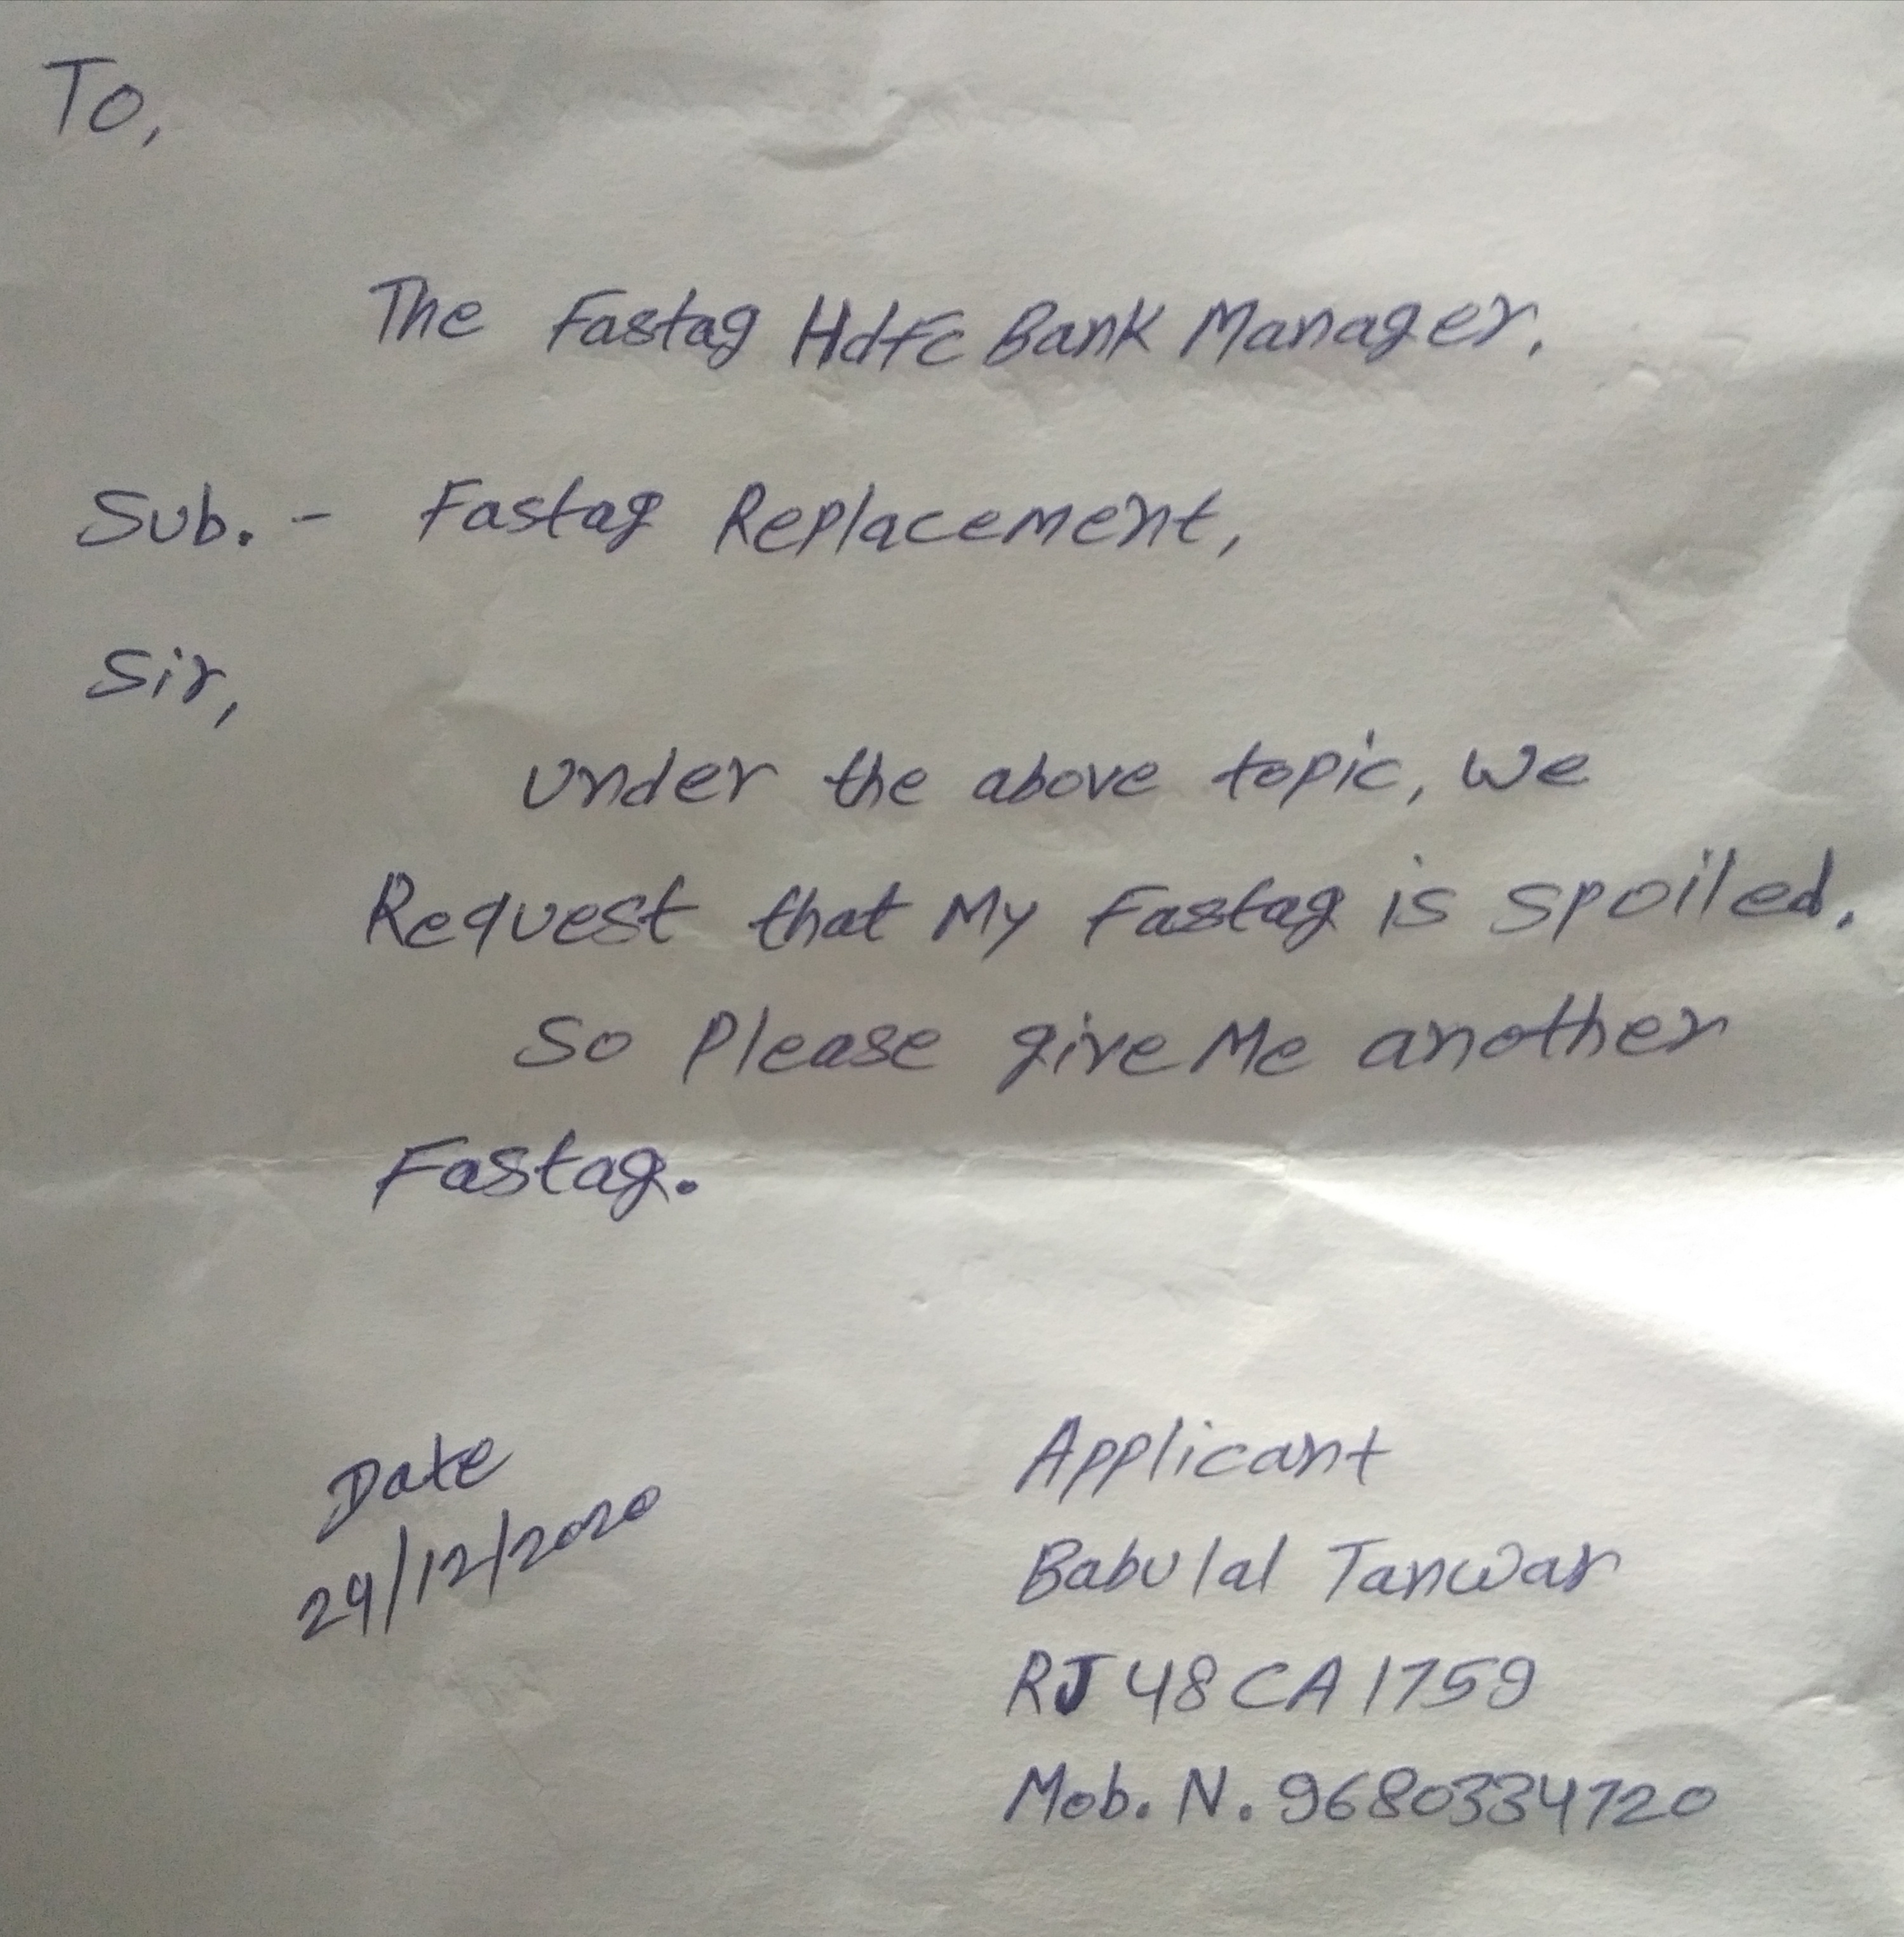 To,
The Fastag Hdfc Bank Manager,
Sub. - Fastag Replacement,
Sir,
Under the above topic, We
Request that My Fastag is spoiled.
So Please give Me another
Fastag.
Date
29/12/2020
Applicant
Babulal Tanwar
RJ 48 CA 1759
Mob. N. 9680334720